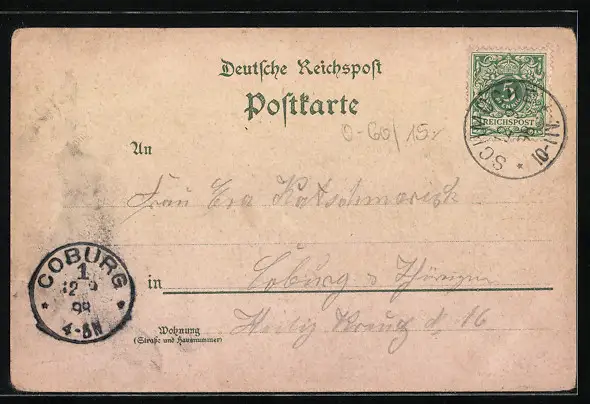 Deutsche Reichspost
Postkarte
5
REICHSPOST
10-11N.
0-60/15,
An
Frau Eva Kotschmarek
COBURG
1
12 9
98
4-5N
in Coburg i Thüringen
Wohnung
(Straße und Hausnummer)
Heilig Kreuz
16